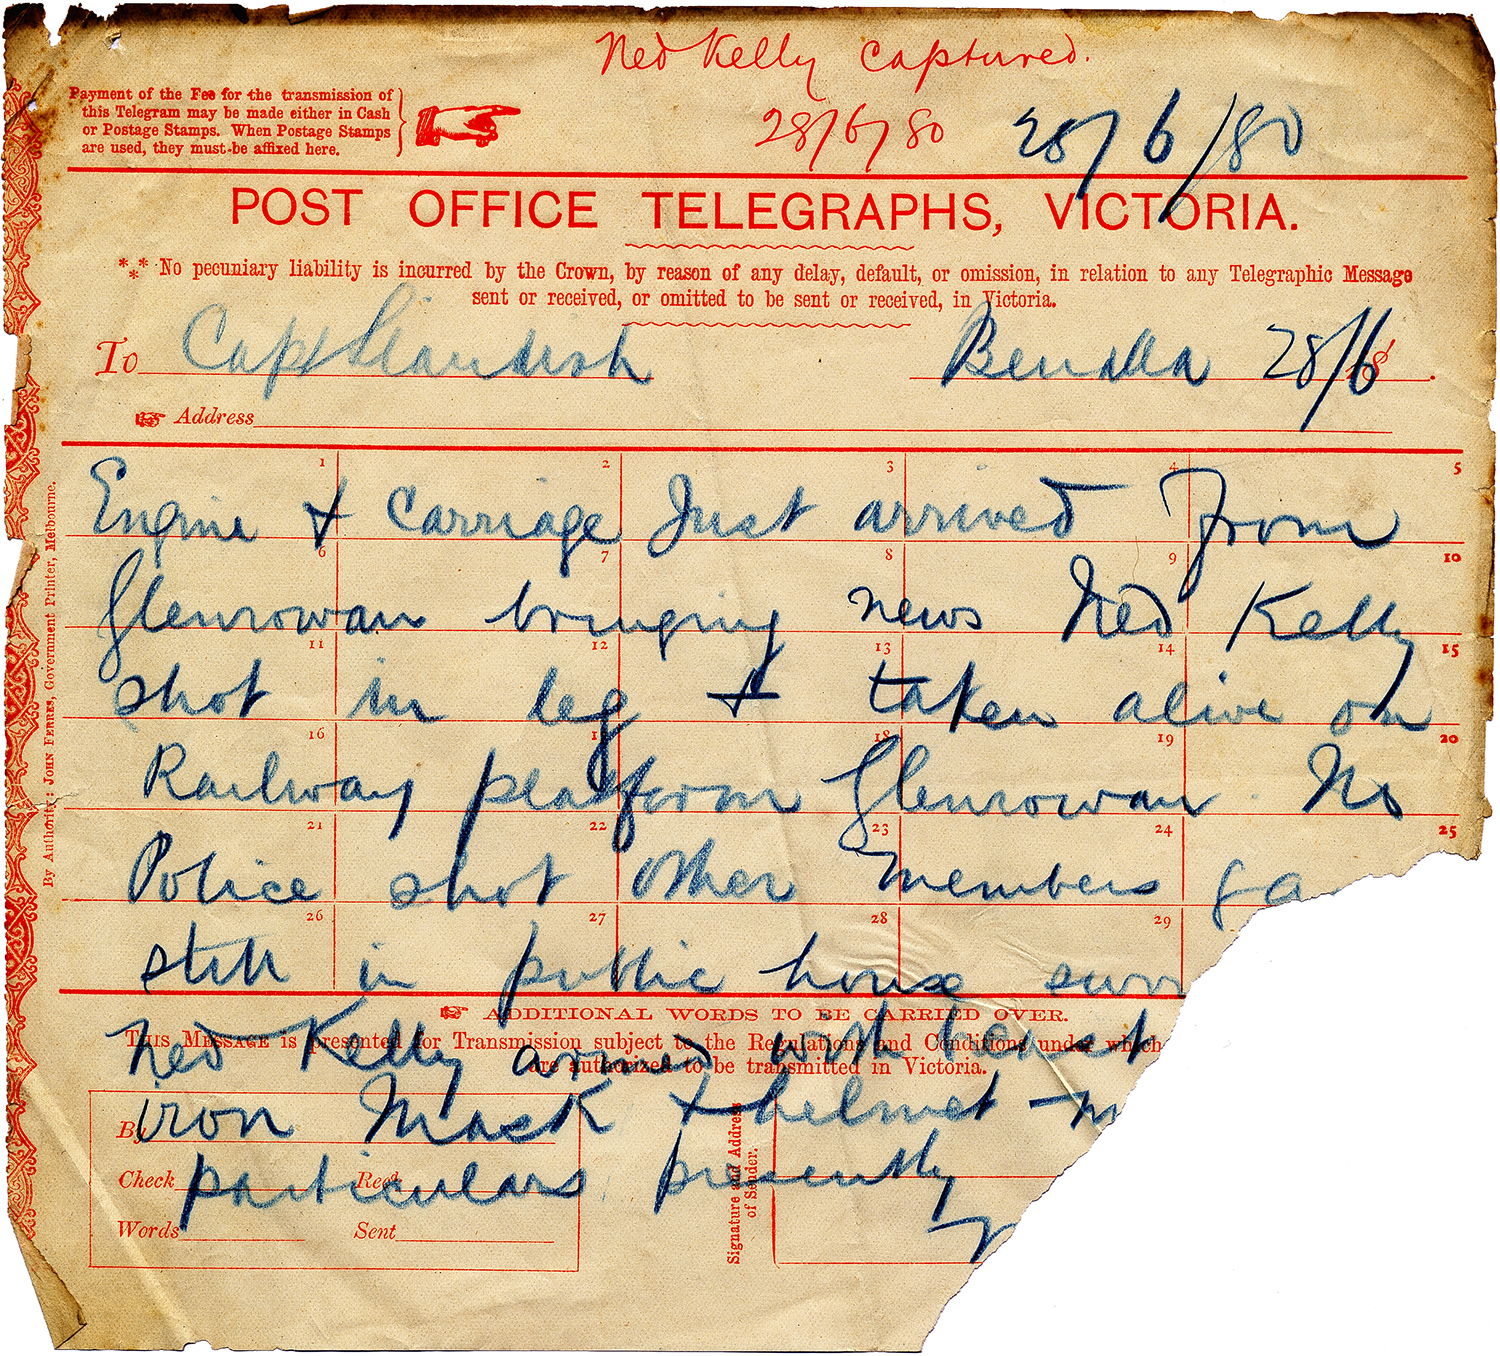 Ned Kelly captured.
28/6/80 28/6/80
Payment of the Fee for the transmission of
this Telegram may be made either in Cash
or Postage Stamps. When Postage Stamps
are used, they must be affixed here.
POST OFFICE TELEGRAPHS, VICTORIA.
*** No pecuniary liability is incurred by the Crown, by reason of any delay, default, or omission, in relation to any Telegraphic Message
sent or received, or omitted to be sent or received, in Victoria.
To Capt Standish Benalla 28/6 18
Address
1 2 3 4 5
Engine & carriage Just arrived From
6 7 8 9 10
Glenrowan bringing news Ned Kelly
11 12 13 14 15
shot in leg & taken alive on
16 17 18 19 20
Railway platform Glenrowan. No
21 22 23 24 25
Police shot other members ga
26 27 28 29
still in public house surr
ADDITIONAL WORDS TO BE CARRIED OVER.
Ned Kelly armed with
THIS MESSAGE is presented for Transmission subject to the Regulations and Conditions under which
are authorized to be transmitted in Victoria.
iron Mask & helmet - m
particulars presently
By
Check Recd
Words Sent
Signature and Address
of Sender.
By Authority: JOHN FERRES, Government Printer, Melbourne.